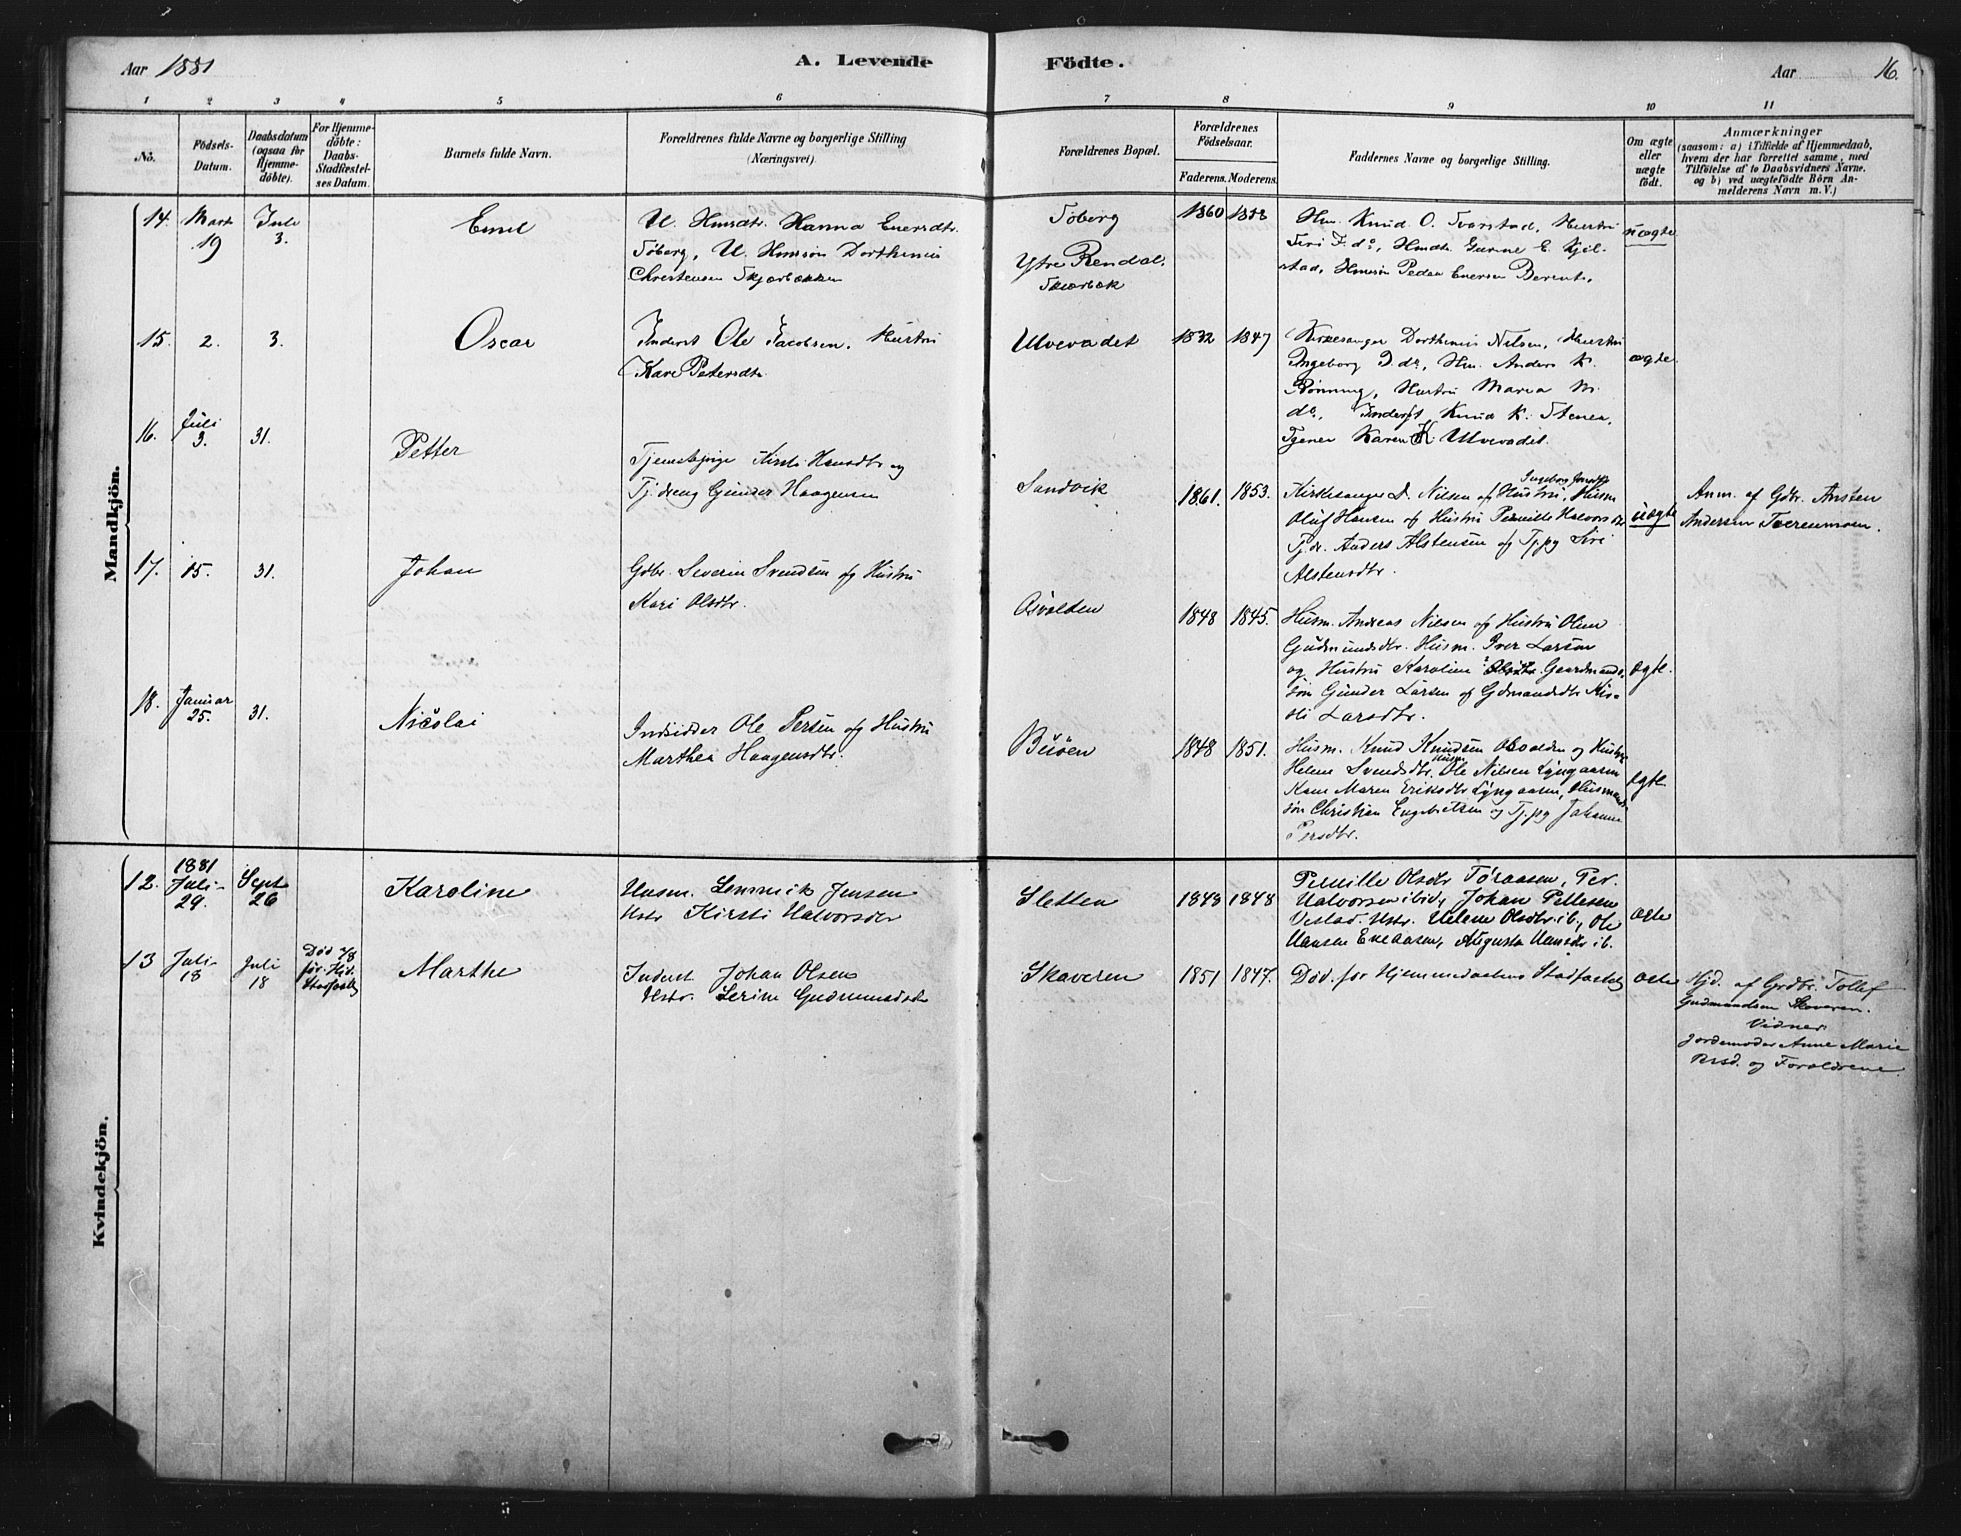 Aar 1881
A. Levende Födte.
Aar 16.
1 2 3 4 5 6 7 8 9 10 11
No.
Födsels-Datum.
Daabsdatum (ogsaa for Hjemme-döbte).
For Hjemme-döbte: Daabs-Stadfæstel-ses Datum.
Barnets fulde Navn.
Forældrenes fulde Navne og borgerlige Stilling (Næringsvei).
Forældrenes Bopæl.
Forældrenes Födselsaar.
Faderens. Moderens.
Faddernes Navne og borgerlige Stilling.
Om ægte eller uægte födt.
Anmærkninger (saasom: a) i Tilfælde af Hjemmedaab, hvem der har forrettet samme, med Tilföielse af to Daabsvidners Navne, og b) ved uægtefödte Börn An-melderens Navn m. V.)
Mandkjön.
14. Mart 19 Jule 3. Emil
U. Hmdtr. Hanna Enersdtr.
Søberg, U. Hmsøn Dorthinius
Christensen Skjærbækken
Søberg
Ytre Rendal.
Skiærbæk
1860 1858
Hm. Knud O. Tvarstad, Hustru
Siri F. do, Hmdtr. Gunne E. Kjil-
stad, Hmsøn Peder Enersen Berent.
uægte
15. 2. 3. Oscar
Inderst Ole Jacobsen, Hustru
Kari Petersdtr.
Ulvevadet
1832 1847
Kirkesanger Dorthinius Nilsen, Hustru
Ingeborg J. dr, Hm. Anders K.
Rønning, Hustru Maria M.
do, Inderst Knud K. Stenen,
Tjener Karen K. Ulvevadet.
ægte
16. Juli 3. 31. Petter
Tjenestepige Kirsti Hansdtr og
Tj.dreng Gunder Haagensen
Sandvik
1861. 1853.
Ingeborg Jonsdtr
Kirkesanger D. Nilsen og Hustru, Husm
Oluf Hansen og Hustru Pernille Halvorsdtr
Tj.dr. Anders Alstensen og Tj.pg Siri
Alstensdtr.
uægte
Anm. af Gdbr. Austen
Andersen Tverenmoen.
17. 15. 31. Johan
Gdbr. Severin Svendsen og Hustru
Kari Olsdtr.
Osvolden
1848 1845.
Husm. Andreas Nilsen og Hustru Oline
Gudmundsdtr. Husm. Iver Larsen
og Hustru Karoline Olsdtr. Gaardmands-
søn Gunder Larsen og Gdmandsdtr Kir-
sti Larsdtr.
ægte.
18. Januar 25. 31. Nicolai
Indsidder Ole Persen og Hustru
Marthea Haagensdtr.
Buøen
1848 1851.
Husm. Knud Knudsen Osvolden og Hustru
Helene Svendsdtr. Husm. Ole Nilsen Lyngaasen
Kone Maren Eriksdtr Lyngaasen, Husmands-
søn Christian Engebretsen og Tj.pg Johanne
Persdtr.
ægte
Kvindekjön.
12. 1881 Juli 29. Sept 26 Karoline
Husm. Lemmik Jensen
Hstr Kirsti Halvorsdtr
Sletten
1849 1848
Pernille Olsdtr Tøraasen, Per
Halvorsen ibid, Johan Pettesen
Vestad. Hstr. Helene Olsdtr. ib., Ole
Hansen Eneaasen, Augusta Hansdtr ib.
ægte
13 Juli 18 Juli 18 Død 7/8 før Hjd. Stadfæstet Marthe
Inderst Johan Olsen
Hstr. Serine Gudmundsdtr
Skaveren
1851 1847.
Død. før Hjemmedaabens Stadfæstelse
ægte
Hjd. af Grdbr. Tollef
Gudmundsen Skaveren.
Vidner:
Jordemoder Anne Marie
Persd. og Forældrene.